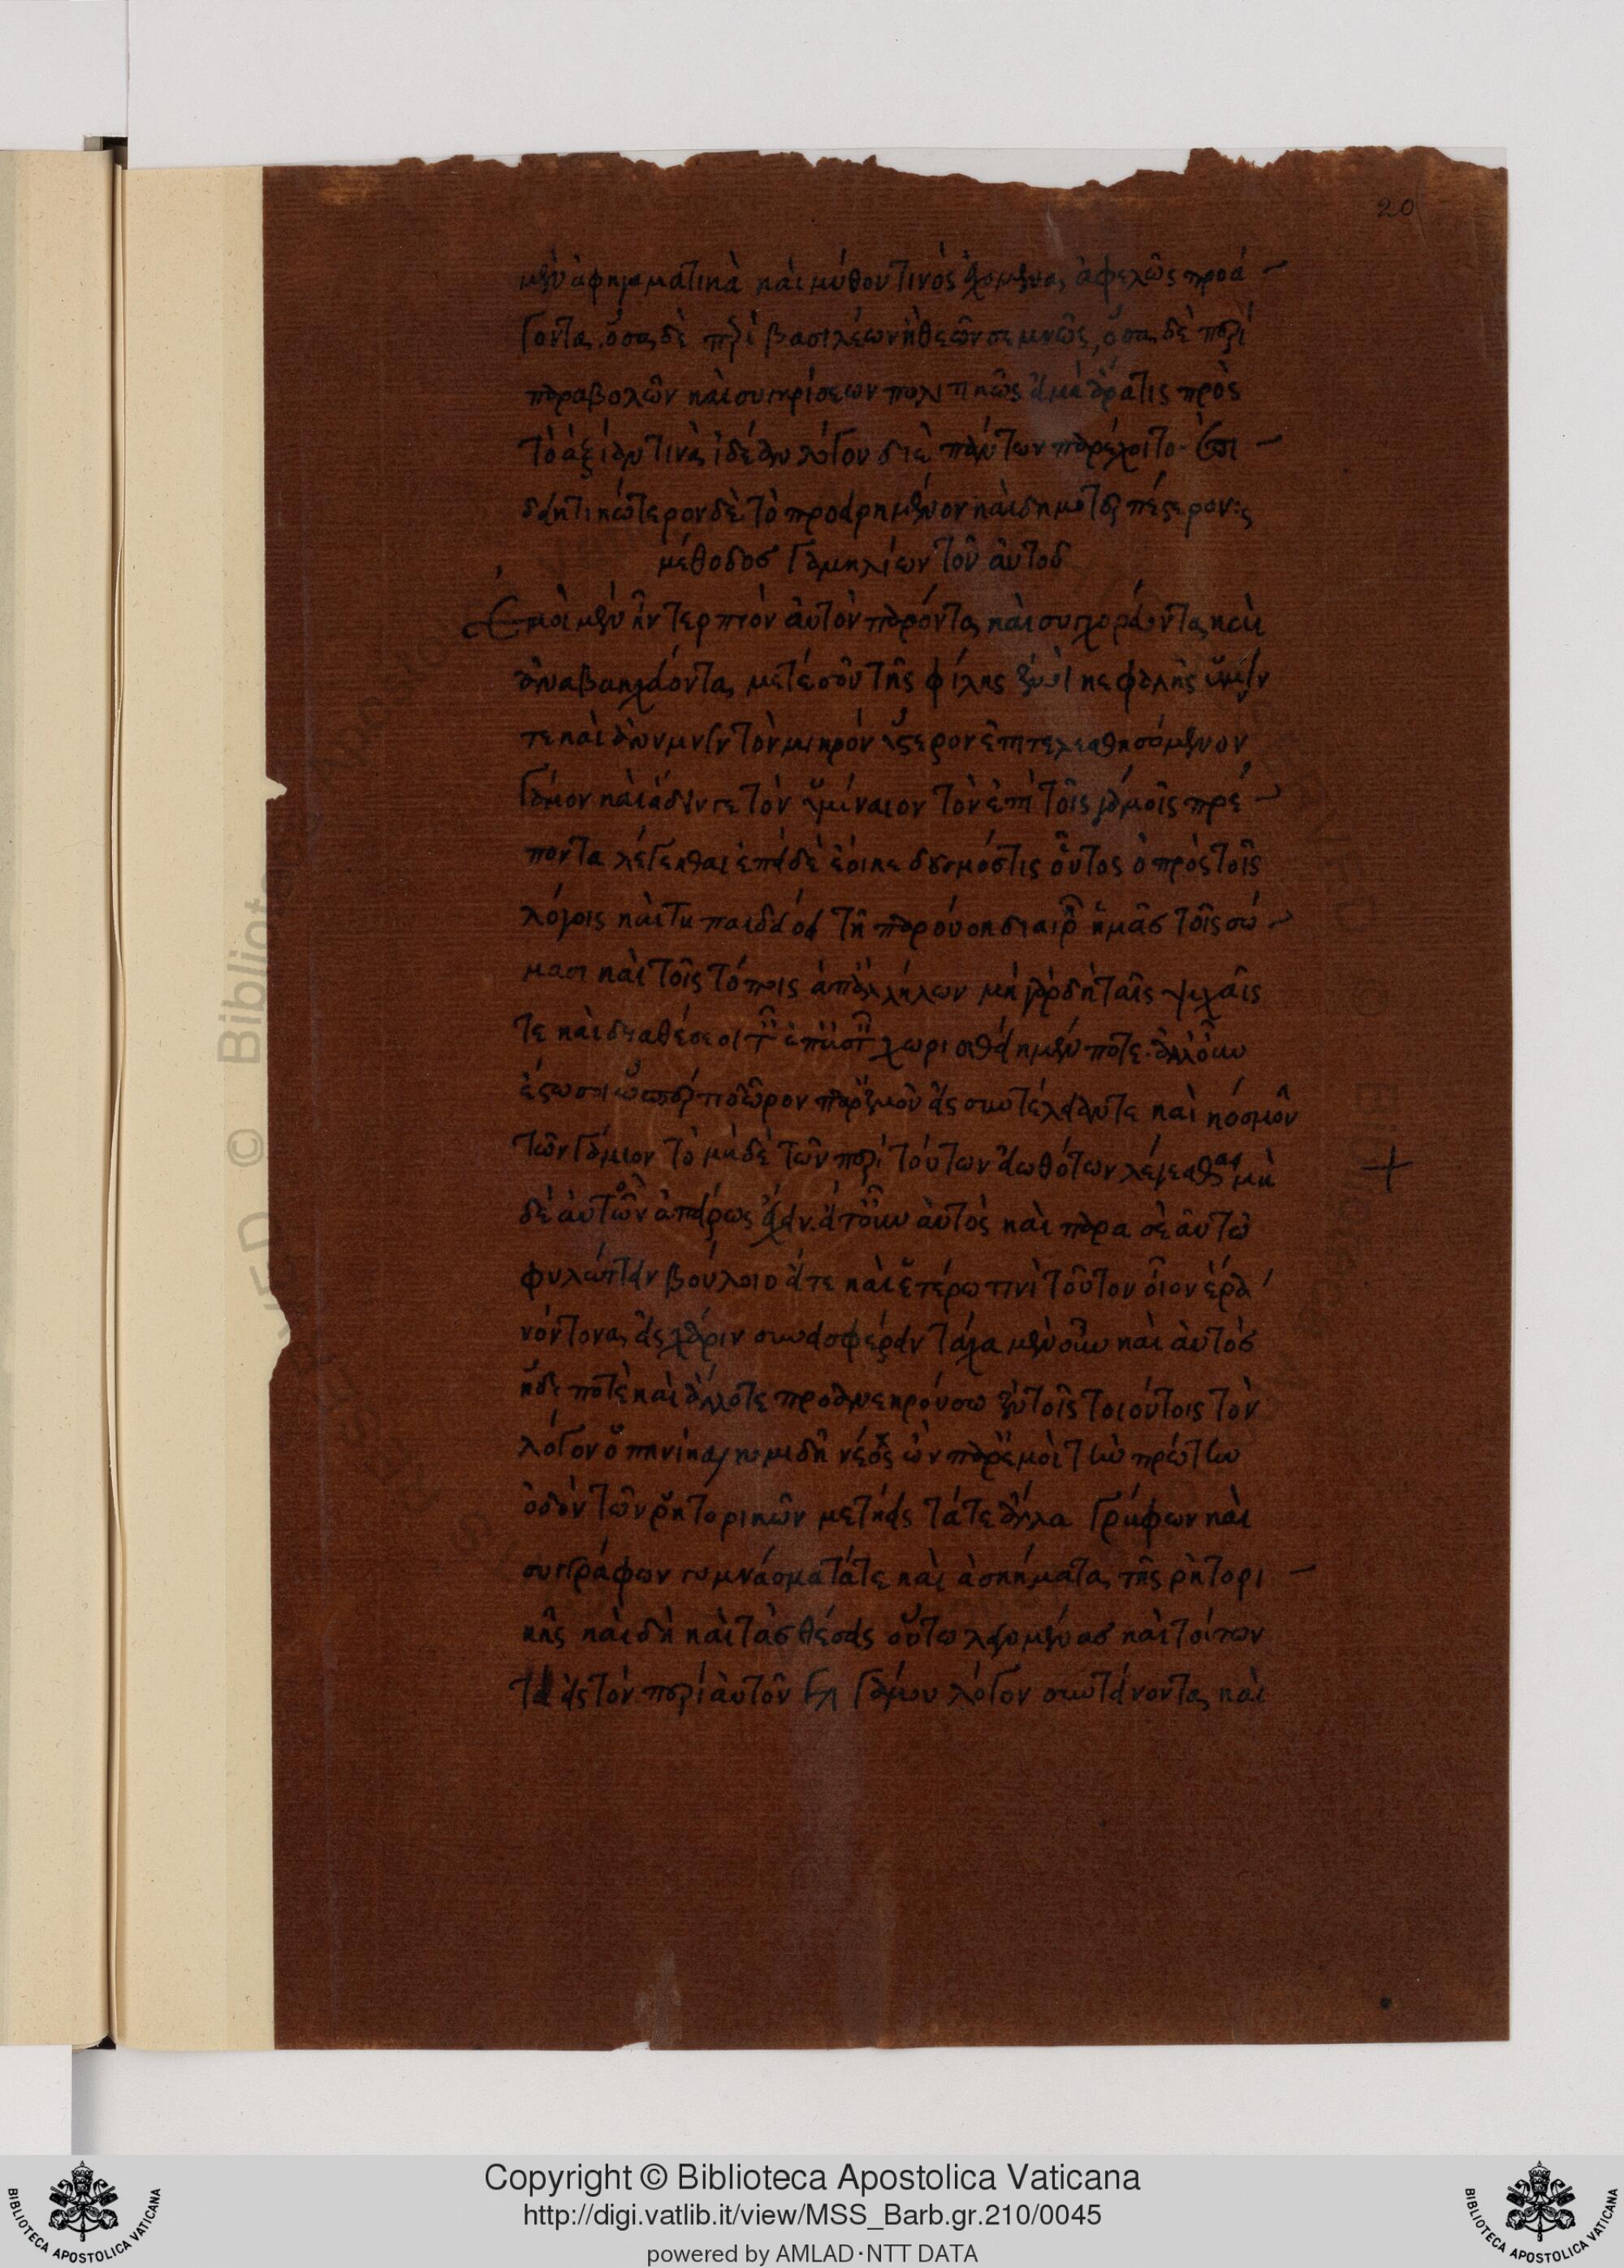 20
μὲν ἀφηγηματικὰ καὶ μύθου τινὸς ἐχόμενα, ἀφελῶς προά-
γοντα, ὅσα δὲ περὶ βασιλέων ἢ θεῶν σεμνῶς, ὅσα δὲ περὶ
παραβολῶν καὶ συγκρίσεων πολιτικῶς
τὸ ἀξίαν τινὰ ἰδέαν λόγου διὰ πάντων παρέχοιτο. Ἐπι-
δεικτικώτερον δὲ τὸ προειρημένον καὶ
μέθοδοσ γαμηλίων τοῦ αὐτοῦ
Ἐμοὶ μὲν ἦν τερπνὸν αὐτὸν παρόντα καὶ συγχορεύοντα καὶ
μετὰ σοῦ τῆς φίλης ἐμοὶ κεφαλῆς ὑμεῖν
τε καὶ ἀνυμνεῖν τὸν μικρὸν ὕστερον ἐπιτελεσθησόμενον
γάμον καὶ ἄδειν γε τὸν ὑμέναιον τὸν ἐπὶ τοῖς γάμοις πρέ-
ποντα λέγεσθαι ἐπεὶ δὲ ἔοικε οὗτος ὁ πρὸς τοῖς
λόγοις καὶ τῇ παιδείᾳ ἡμᾶσ τοῖς σώ-
μασι καὶ τοῖς τόποις ἀπαλλήλων μὴ γὰρ δὴ ταῖς ψυχαῖς
τε καὶ διαθέσεσι χωρισθείημέν ποτε. ἀλλ' οὖν
ἔστω σοι ὥσπερ τι δῶρον παρ' ἐμοῦ εἰς συντέλειάν τε καὶ κόσμον
τῶν γάμων τὸ μηδὲ τῶν περὶ τούτων εἰωθότων λέγεσθαι μὴ
δὲ αὐτῶν ἀπείρως ἔχειν. εἴτ' οὖν αὐτὸς καὶ παρὰ σεαυτῷ
φυλάττειν βούλοιο εἴτε καὶ ἑτέρῳ τινὶ τοῦτον οἷον ἔρα-
νόν τινα εἰς χάριν συνεισφέρειν τάχα μὲν οὖν καὶ αὐτὸσ
ἤδη ποτὲ καὶ ἄλλοτε προανεκρούσω ἐν τοῖς τοιούτοις τὸν
λόγον ὁπηνίκα κομιδῇ νέος ὢν παρ' ἐμοὶ τὴν πρώτην
ὁδὸν τῶν ῥητορικῶν μετῄεις τά τε ἄλλα γράφων καὶ
συγγράφων γυμνάσματά τε καὶ ἀσκήματα τῆς ῥητορι-
κῆς καὶ δὴ καὶ τὰσ θέσεις οὕτω λεγομένασ καὶ τούτων
εἰς τὸν περὶ αὐτοῦ γάμου λόγον συντείνοντα καὶ
Copyright © Biblioteca Apostolica Vaticana
http://digi.vatlib.it/view/MSS_Barb.gr.210/0045
powered by AMLAD·NTT DATA
BIBLIOTECA APOSTOLICA VATICANA
BIBLIOTECA APOSTOLICA VATICANA